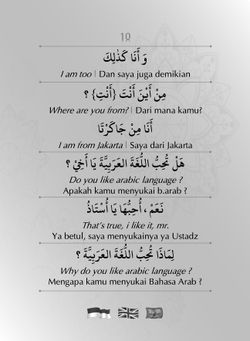 ١٥
وَ أَنَا كَذٰلِكَ
I am too | Dan saya juga demikian
مِنْ أَيْنَ أَنْتَ {أَنْتِ} ؟
Where are you from? | Dari mana kamu?
أَنَا مِنْ جَاكَرْتَا
I am from Jakarta | Saya dari Jakarta
هَلْ تُحِبُّ اللُّغَةَ العَرَبِيَّةَ يَا أَخِيْ ؟
Do you like arabic language ?
Apakah kamu menyukai b.arab ?
نَعَمْ ، أُحِبُّهَا يَا أُسْتَاذُ
That's true, i like it, mr.
Ya betul, saya menyukainya ya Ustadz
لِمَاذَا تُحِبُّ اللُّغَةَ العَرَبِيَّةَ ؟
Why do you like arabic language ?
Mengapa kamu menyukai Bahasa Arab ?